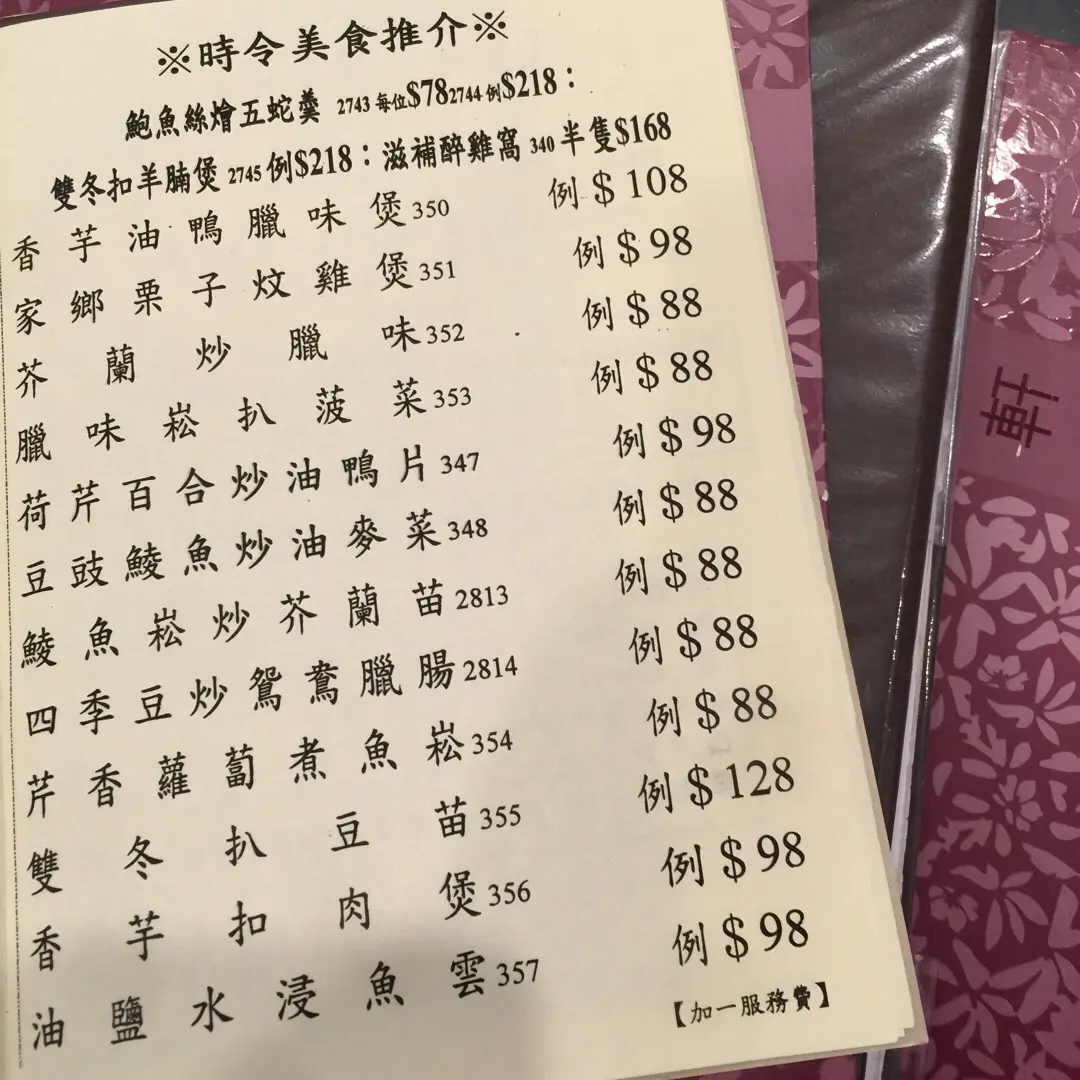 ※時令美食推介※
鮑魚絲燴五蛇羹 2743 每位$78 2744 例$218：
雙冬扣羊腩煲 2745 例$218：滋補醉雞窩 340 半隻$168
香芋油鴨臘味煲 350 例 $ 108
家鄉栗子炆雞煲 351 例 $ 98
芥蘭炒臘味 352 例 $ 88
臘味崧扒菠菜 353 例 $ 88
荷芹百合炒油鴨片 347 例 $ 98
豆豉鯪魚炒油麥菜 348 例 $ 88
鯪魚崧炒芥蘭苗 2813 例 $ 88
四季豆炒鴛鴦臘腸 2814 例 $ 88
芹香蘿蔔煮魚崧 354 例 $ 88
雙冬扒豆苗 355 例 $ 128
香芋扣肉煲 356 例 $ 98
油鹽水浸魚雲 357 例 $ 98
【加一服務費】